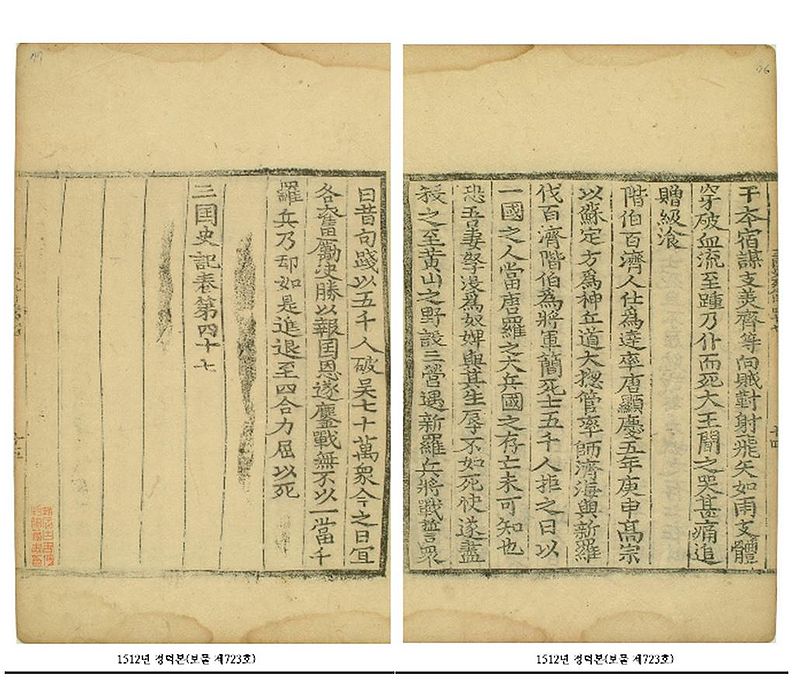 干本宿謀支羙齊等向賊對射飛矢如雨支體
穿破血流至踵乃仆而死大王聞之哭甚痛追
贈級湌
階伯百濟人仕爲達率唐顯慶五年庚申髙宗
以蘇定方爲神丘道大揔管率師濟海與新羅
伐百濟階伯爲將軍簡死士五千人拒之曰以
一國之人當唐羅之大兵國之存亡未可知也
恐吾妻孥没爲奴婢與其生辱不如死快遂盡
殺之至黄山之野設三營遇新羅兵將戰誓衆
曰昔句踐以五千人破吳七十萬衆今之日宜
各奮勵决勝以報国恩遂鏖戰無不以一當千
羅兵乃却如是進退至四合力屈以死
三国史記卷第四十七
1512년 정덕본(보물 제723호)
1512년 정덕본(보물 제723호)